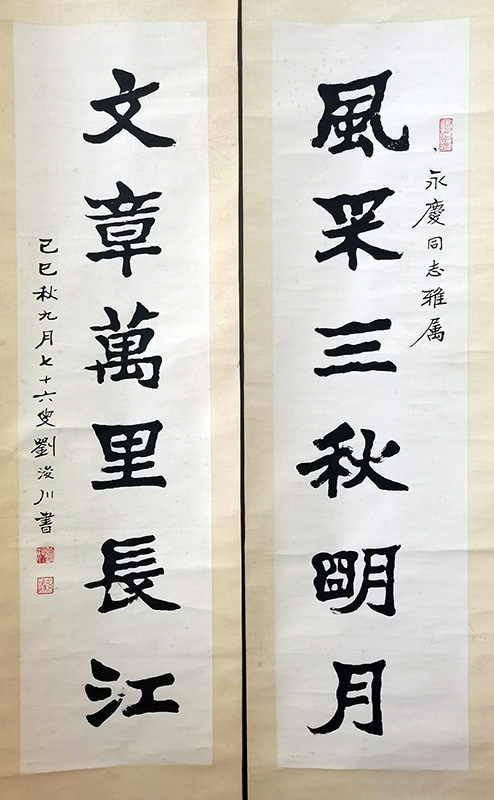 永慶同志雅属
風采三秋明月
文章萬里長江
己巳秋九月七十六叟劉浚川書